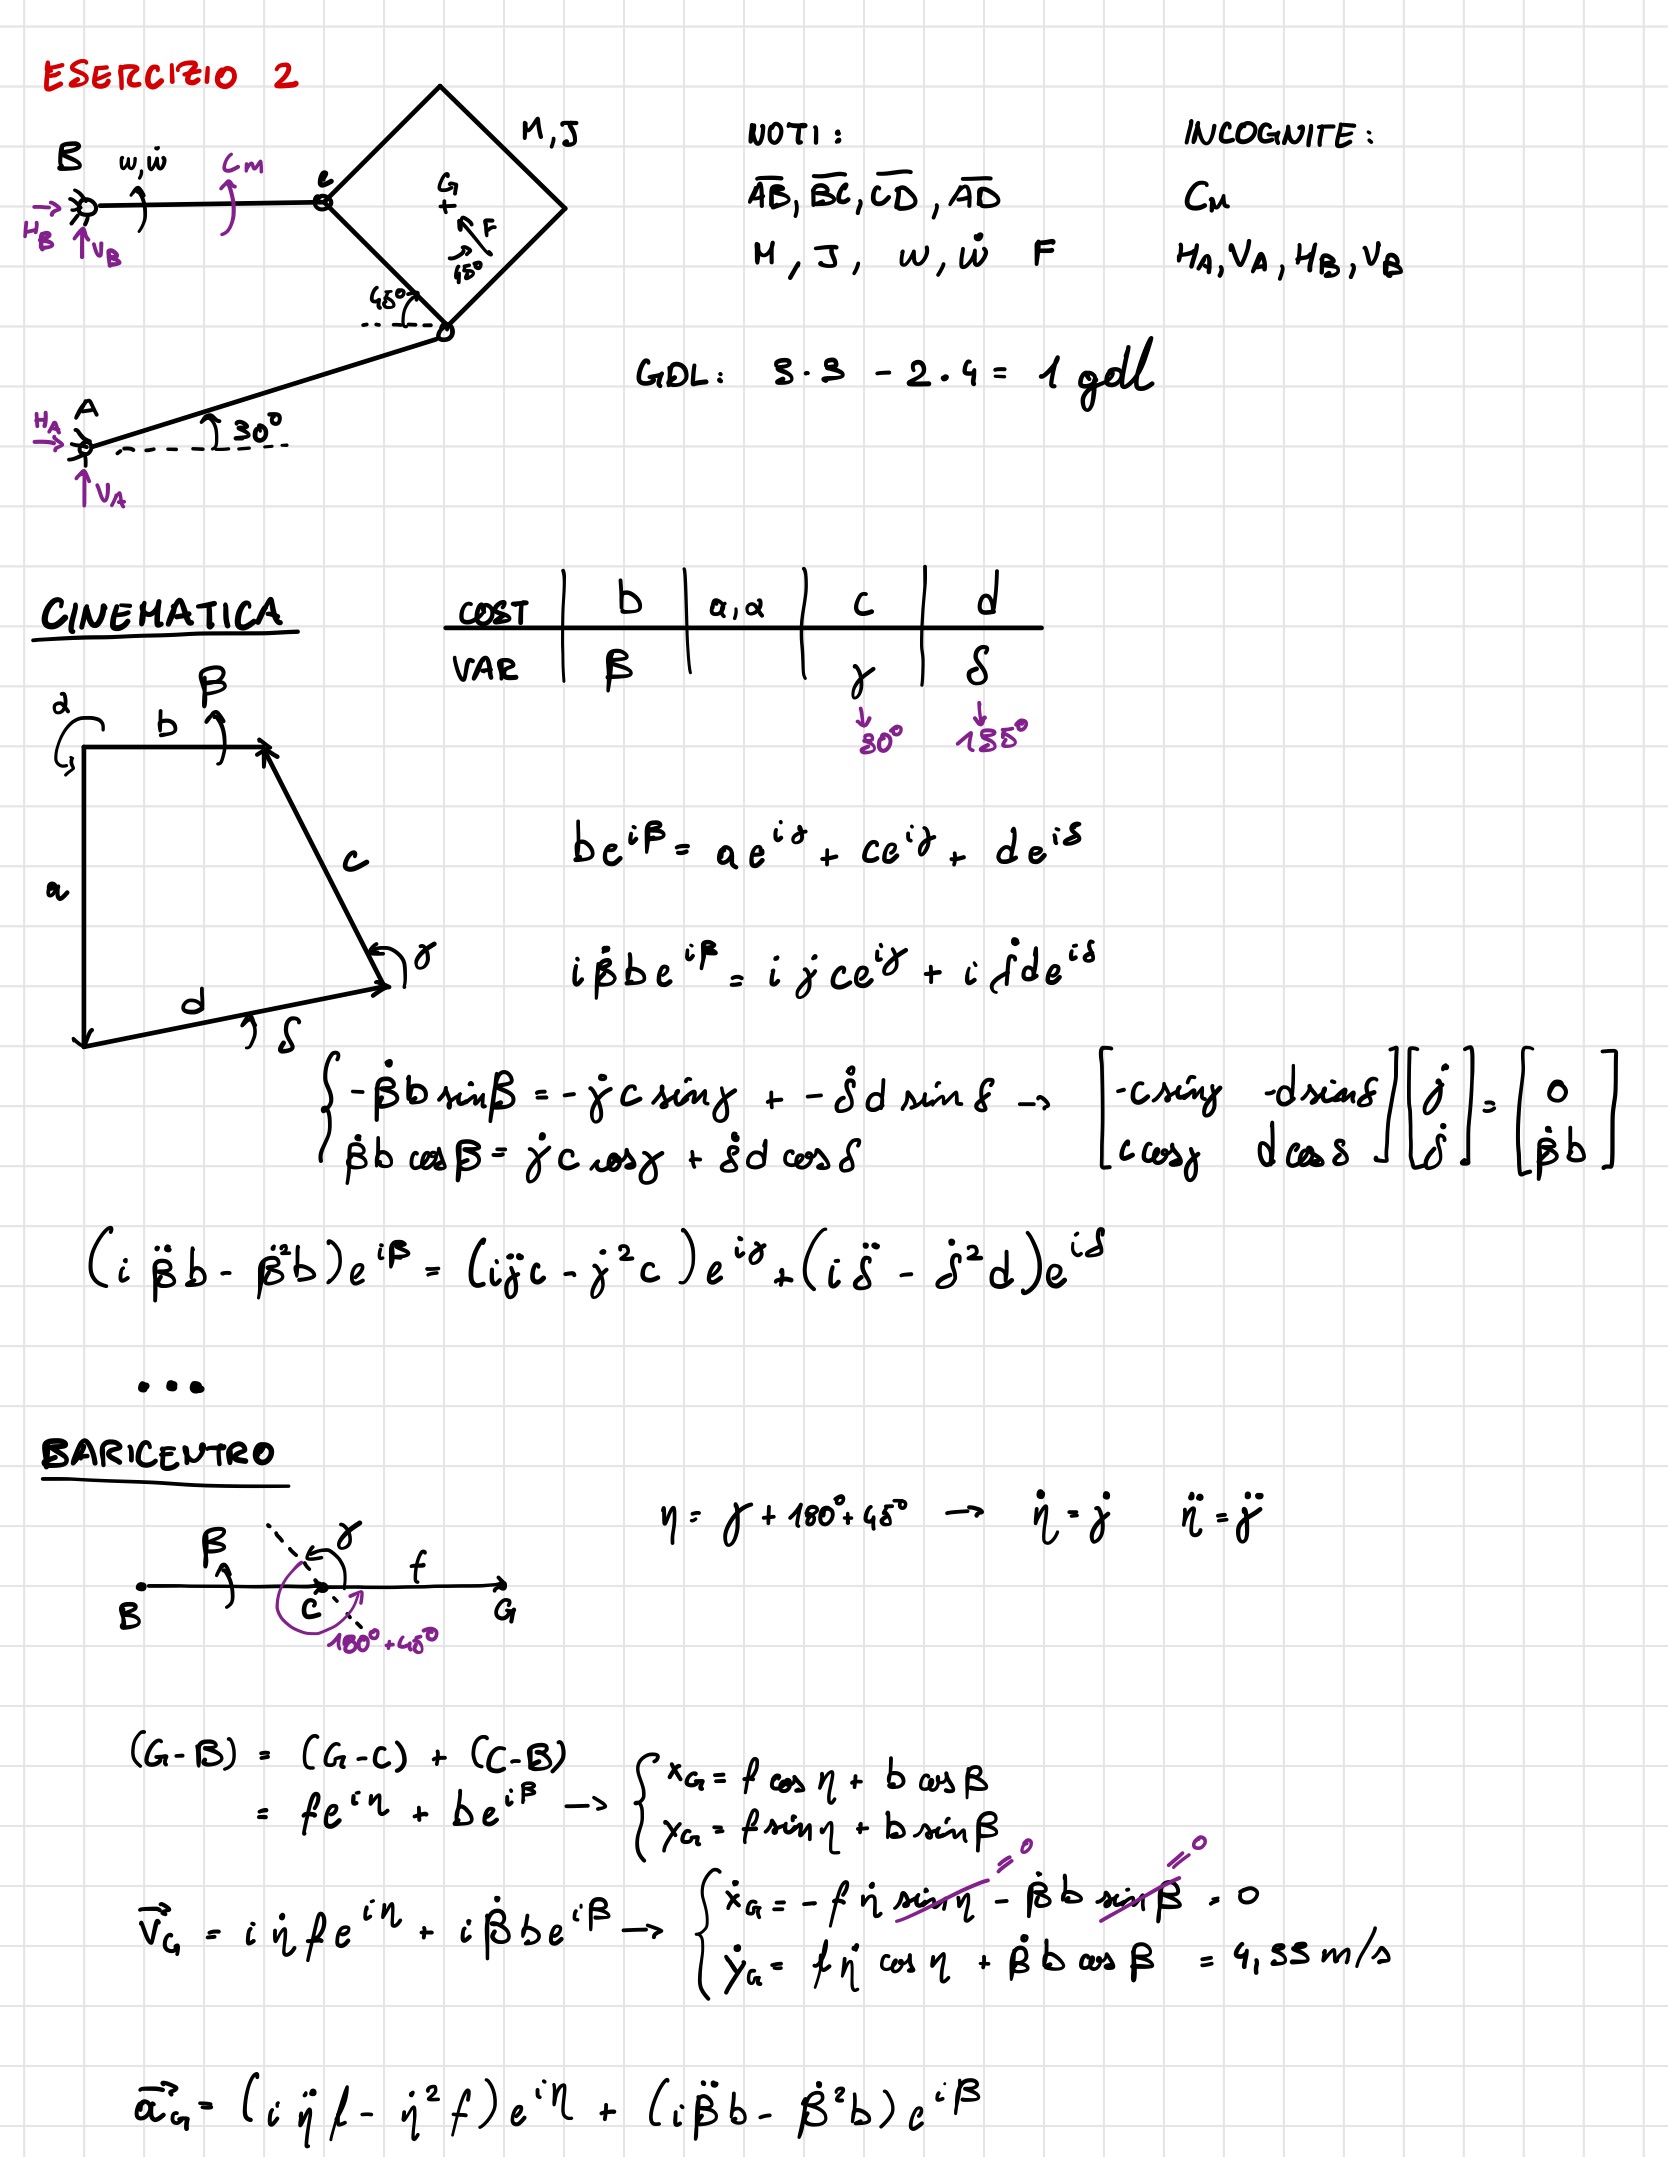 ESERCIZIO 2
B ω, ω̇ Cm C M, J
H_B V_B G F 45°
45°
A H_A V_A 30°
NOTI:
A̅B̅, B̅C̅, C̅D̅, A̅D̅
M, J, ω, ω̇ F
INCOGNITE:
Cm
H_A, V_A, H_B, V_B
GDL: 3·3 - 2·4 = 1 gdl
CINEMATICA
COST | b | a, α | c | d
VAR | β | | γ | δ
↓ 30° ↓ 135°
α b β
a c
d δ γ
be^{iβ} = ae^{iγ} + ce^{iγ} + de^{iδ}
iβ̇be^{iβ} = iγ̇ce^{iγ} + iδ̇de^{iδ}
{ -β̇b sinβ = -γ̇c sinγ + -δ̇d sinδ → [-c sinγ -d sinδ] [γ̇] = [0]
β̇b cosβ = γ̇c cosγ + δ̇d cosδ [c cosγ d cosδ] [δ̇] [β̇b]
(iβ̈b - β̈²b)e^{iβ} = (iγ̈c - γ̇²c)e^{iγ} + (iδ̈ - δ̇²d)e^{iδ}
...
BARICENTRO
η = γ + 180° + 45° → η̇ = γ̇ η̈ = γ̈
β γ f
B C G
180° + 45°
(G-B) = (G-C) + (C-B)
= fe^{iη} + be^{iβ} → { x_G = f cosη + b cosβ
y_G = f sinη + b sinβ
V⃗_G = iη̇fe^{iη} + iβ̇be^{iβ} → { ẋ_G = -fη̇ sinη - β̇b sinβ = 0
=0 =0
ẏ_G = fη̇ cosη + β̇b cosβ = 4,33 m/s
a⃗_G = (iη̈f - η̇²f)e^{iη} + (iβ̈b - β̇²b)e^{iβ}